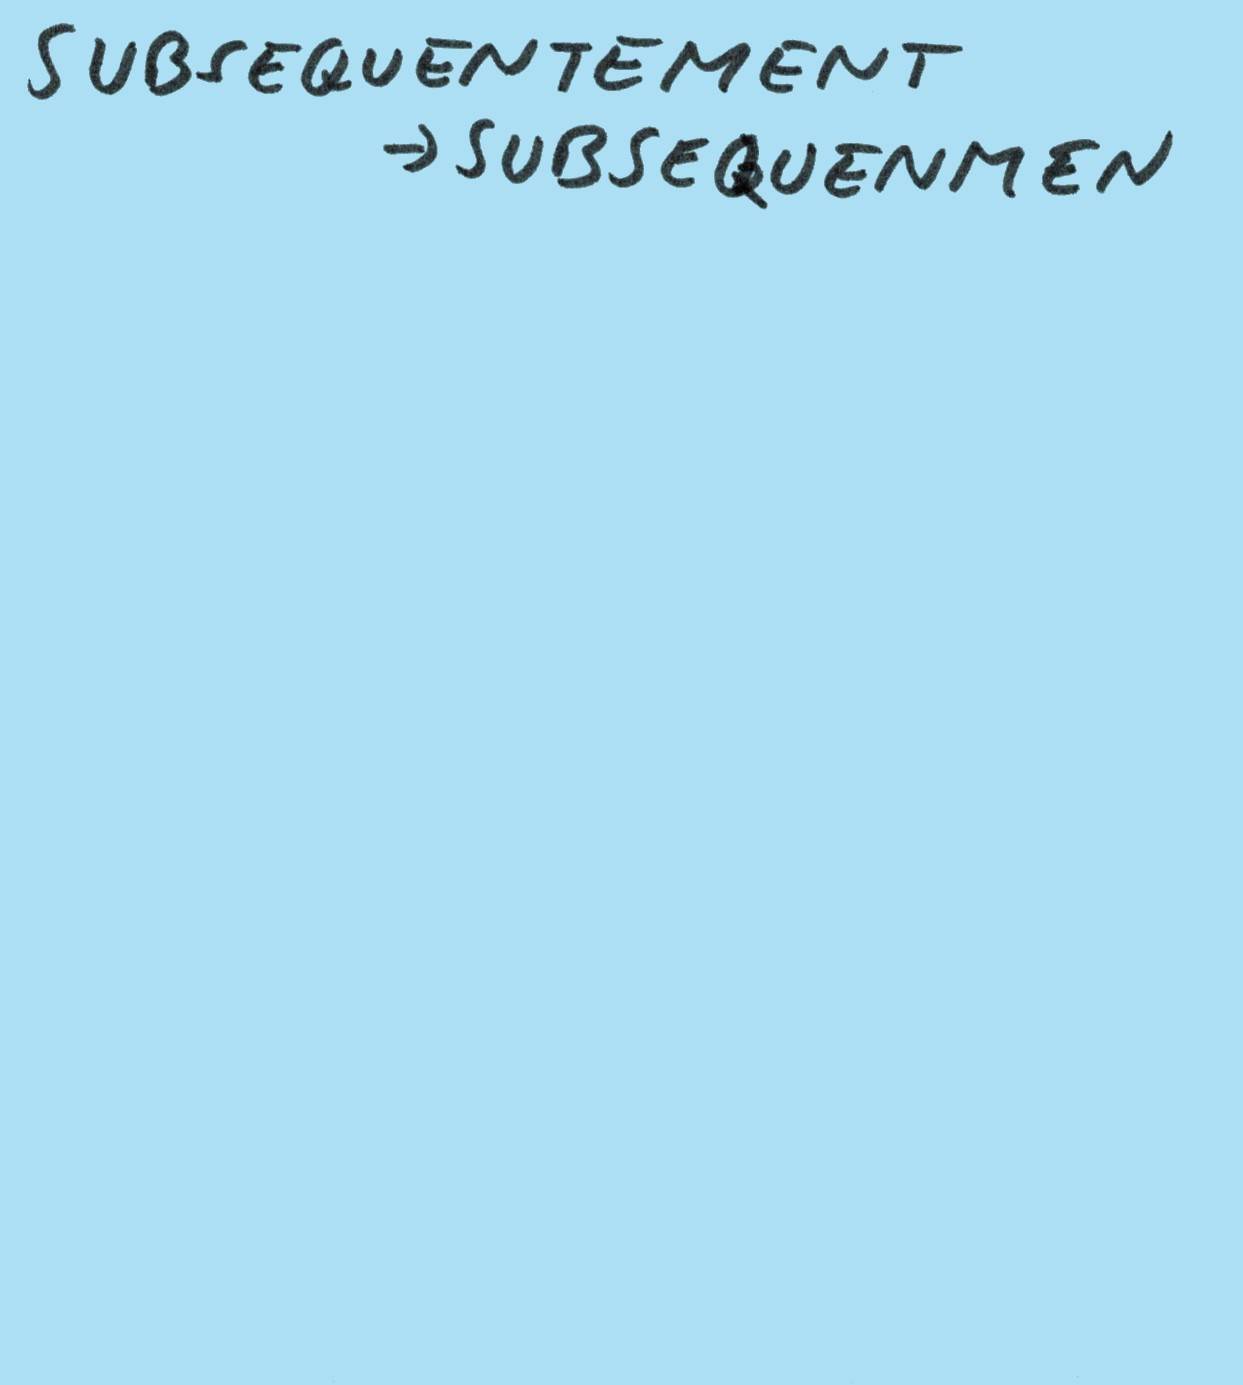 SUBSEQUENTEMENT
→SUBSEQUENMEN